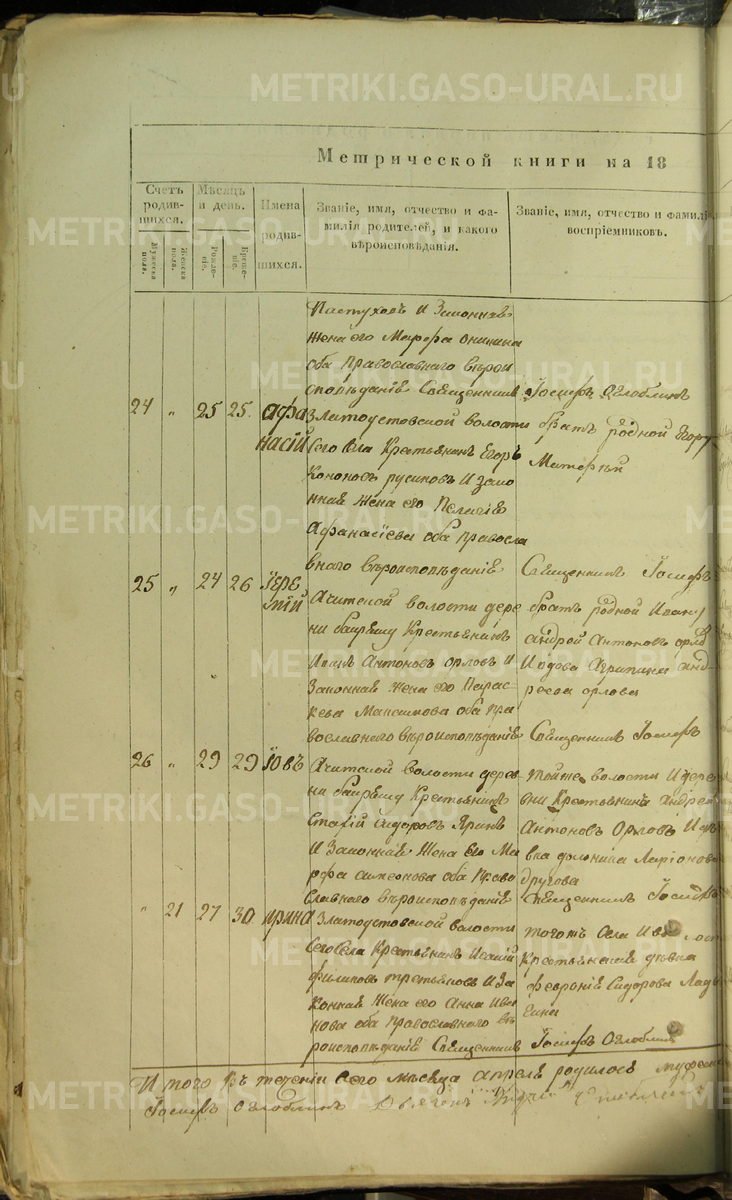 Метрической книги на 18
Счетъ родив-шихся.
Мужеска пола.
Женска пола.
Мѣсяцъ и день.
Рожде-ніе.
Креще-ніе.
Имена родив-шихся.
Званіе, имя, отчество и фа-
милія родителей, и какого
вѣроисповѣданія.
Званіе, имя, отчество и фамилі
воспріемниковъ.
Пастуховъ и Законная
жена его Марфа
оба православнаго вѣрои
споповѣданіе Священникъ Іосифъ Оглоблинъ
24 „ 25 25. Афа
насій
Златоустовской волости
Сего Села Крестьянинъ Егоръ
Кононовъ русиновъ и зако
нная жена его Пелагіе
Афанасіева оба правосла
внаго вѣроисповѣданіе Священникъ Іосифъ
братъ родной Егору
Матофѣй
25 „ 24 26 Іере
мій
Ачитской волости дере
вни Крестьянинъ
Иванъ Антоновъ орловъ И
Законная жена его Парас
кева Максимова оба пра
вославнаго вѣроисповѣданіе Священникъ Іосифъ
братъ родной Ивану
андрей Антоновъ орло
И вдова Агрипина анд
реева орлова
26 „ 29 29 Іовъ
Ачитской волости дерев
ни Крестьянинъ
Сидоровъ
И Законная жена его Ма
рфа оба право
славнаго вѣроисповѣданіе Священникъ Іосифъ
тойже волости И дере
вни Крестьянинъ андрей
Антоновъ Орловъ И дѣ
вка Ларіонова
другова
„ 21 27 30 ирина
Златоустовской волости
Сего Села Крестьянинъ
филиповъ третьяковъ И за
конная жена его Анна Ива
нова оба православнаго вѣ
роисповѣданіе Священникъ Іосифъ Оглоблинъ
тогожъ Села
Крестьянская дѣвка
феврониѣ Сидорова
И того въ теченіи сего мѣсяца апреля родилось
Іосифъ Оглоблинъ Дьяконъ
METRIKI.GASO-URAL.RU